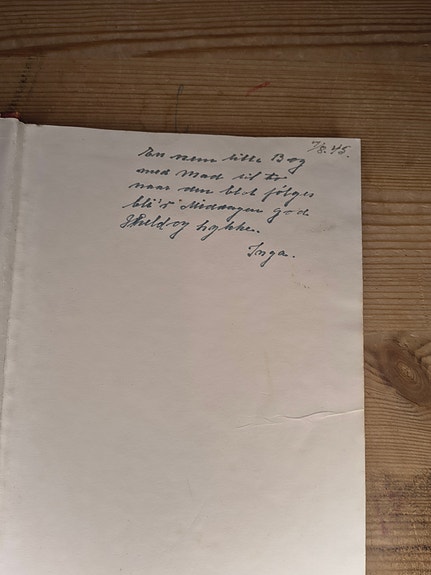 7/8.45.
En nem lille Bog
med Mad til to
naar den blot følges
bli'r Middagen god
Held og Lykke.
Inga.